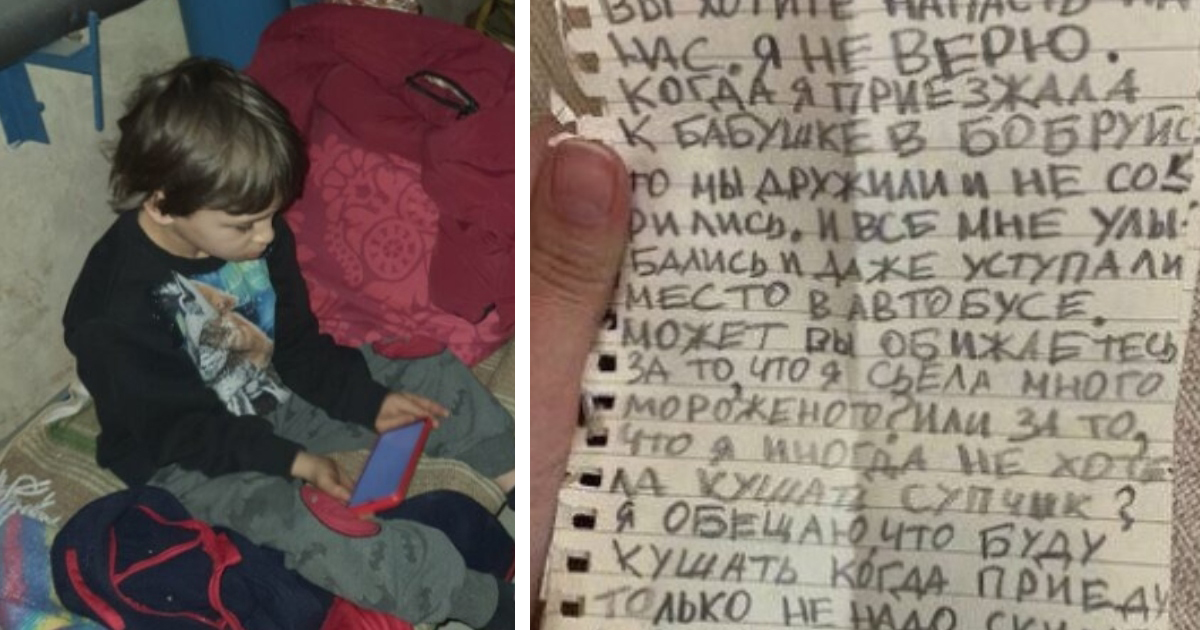 ВЫ ХОТИТЕ НАПАСТЬ НА
НАС. Я НЕ ВЕРЮ.
КОГДА Я ПРИЕЗЖАЛА
К БАБУШКЕ В БОБРУЙС
ТО МЫ ДРУЖИЛИ И НЕ СОС
РИЛИСЬ. И ВСЕ МНЕ УЛЫ-
БАЛИСЬ И ДАЖЕ УСТУПАЛИ
МЕСТО В АВТОБУСЕ.
МОЖЕТ ВЫ ОБИЖАЕТЕСЬ
ЗА ТО, ЧТО Я СЬЕЛА МНОГО
МОРОЖЕНОГО? ИЛИ ЗА ТО,
ЧТО Я ИНОГДА НЕ ХОТЕ
ЛА КУШАТЬ СУПЧИК?
Я ОБЕЩАЮ, ЧТО БУДУ
КУШАТЬ КОГДА ПРИЕДУ
ТОЛЬКО НЕ НАДО